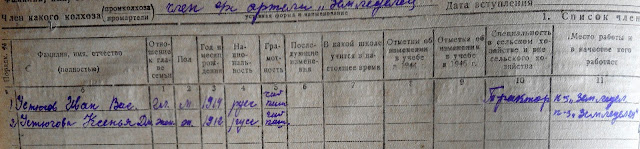 Член какого колхоза (промколхоза промартели) член с/х артели „Земледелец
условная форма и наименование
Дата вступления
1. Список член
№ Порядк.
Фамилия, имя, отчество (полностью)
Отношение к главе семьи
Пол
Год и месяц рождения
Национальность
Грамотность
Последующие изменения
В какой школе учится в настоящее время
Отметки об изменении в учебе в 194 г.
Отметки об изменении в учебе в 194 г.
Специальность в сельском хозяйстве и вне сельского хозяйства
Место работы и в качестве кого работает
1 2 3 4 5 6 7 8 9 10 11
1 Устюгов Иван Вас. гл. м. 1914 русс чит пиш Трактор к-з „Земледел
2 Устюгова Ксенья жена ж. 1912 русс чит к-з „Земледелец"